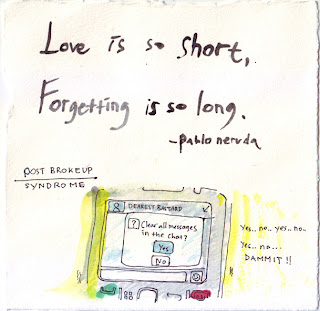 Love is so short,
Forgetting is so long.
-pablo neruda
POST BROKEUP
SYNDROME
DEAREST BASTARD
? Clear all messages
in the chat?
Yes
No
Yes.. no.. yes.. no..
Yes.. no...
DAMMIT !!